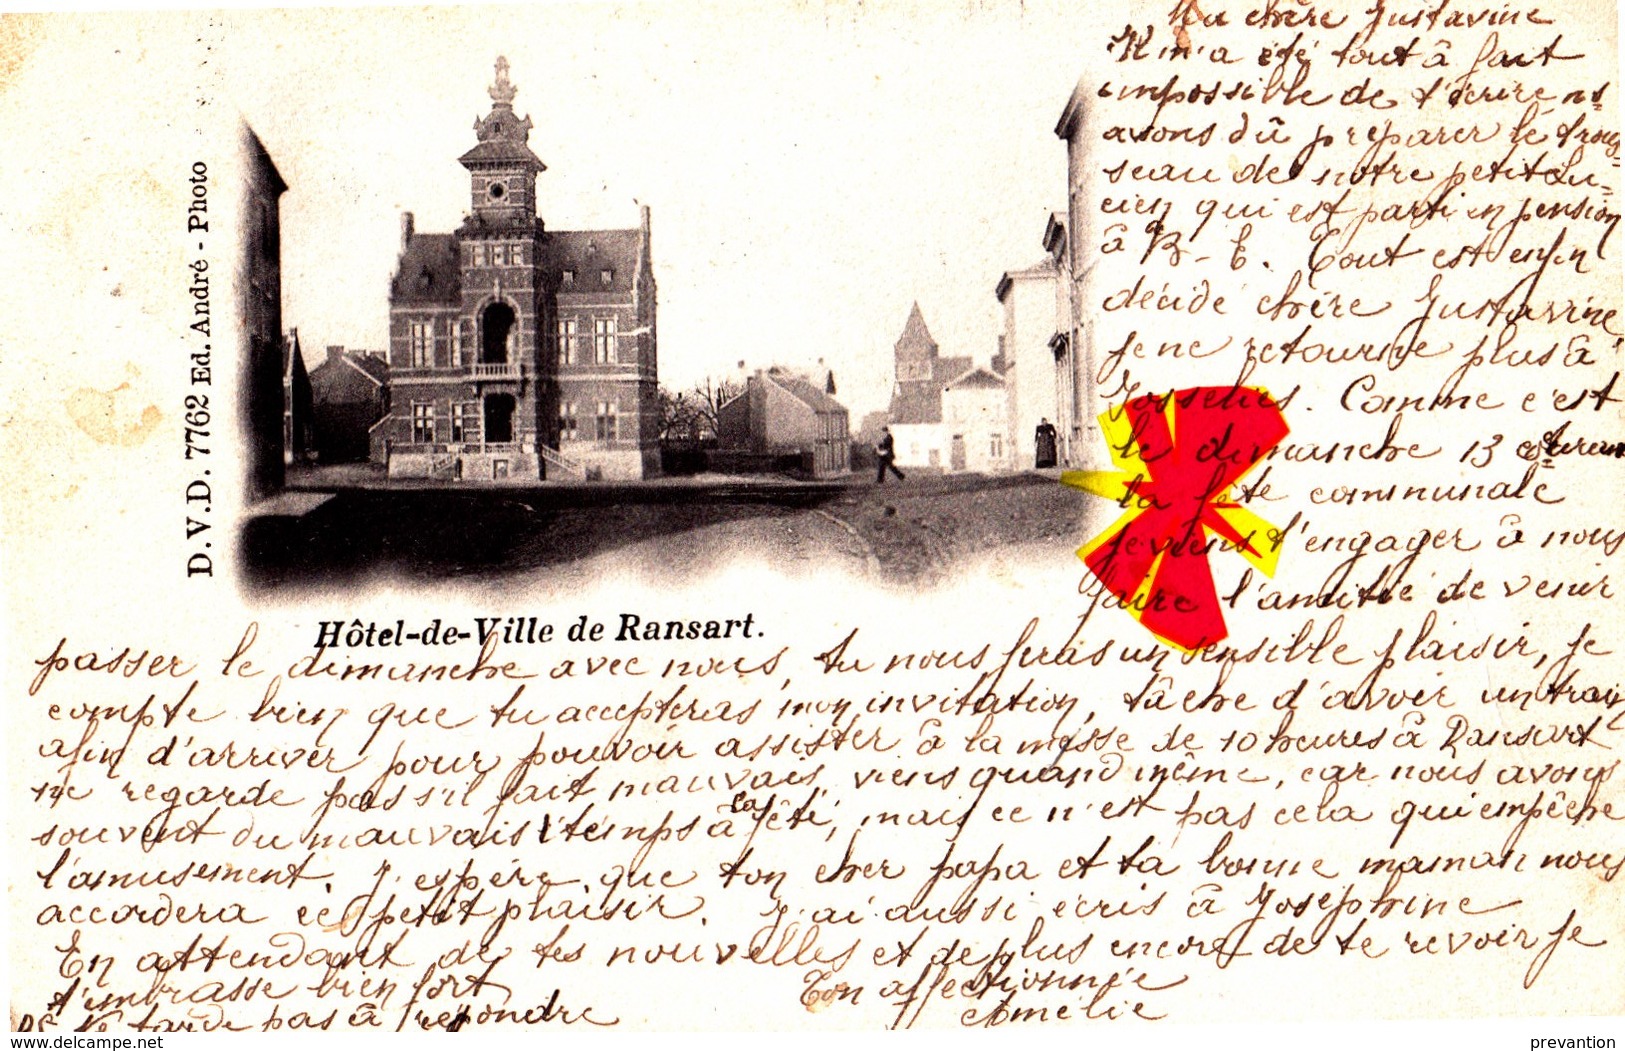 Ma chère Gustavine
Il m'a été tout à fait
impossible de t'écrire ns
avons dû préparer le trous=
seau de notre petit Lu=
cien qui est parti en pension
à B-E. Tout est enfin
décidé chère Gustavine,
je ne retourne plus à
Gosselies. Comme c'est
le dimanche 13 courant
la fête communale
je viens t'engager à nous
faire l'amitié de venir
passer le dimanche avec nous, tu nous feras un sensible plaisir, je
compte bien que tu accepteras mon invitation, tâche d'avoir un train
afin d'arriver pour pouvoir assister à la messe de 10 heures à Ransart
ne regarde pas s'il fait mauvais, viens quand même, car nous avons
souvent du mauvais temps à la fête, mais ce n'est pas cela qui empêche
l'amusement. J'espère que ton cher papa et ta bonne maman nous
accordera ce petit plaisir. J'ai aussi écris à Joséphine
En attendant de tes nouvelles et de plus encore de te revoir je
t'embrasse bien fort
Ton affectionnée
Amélie
PS Ne tarde pas à répondre
D.V.D. 7762 Ed. André - Photo
Hôtel-de-Ville de Ransart.
www.delcampe.net
prevantion